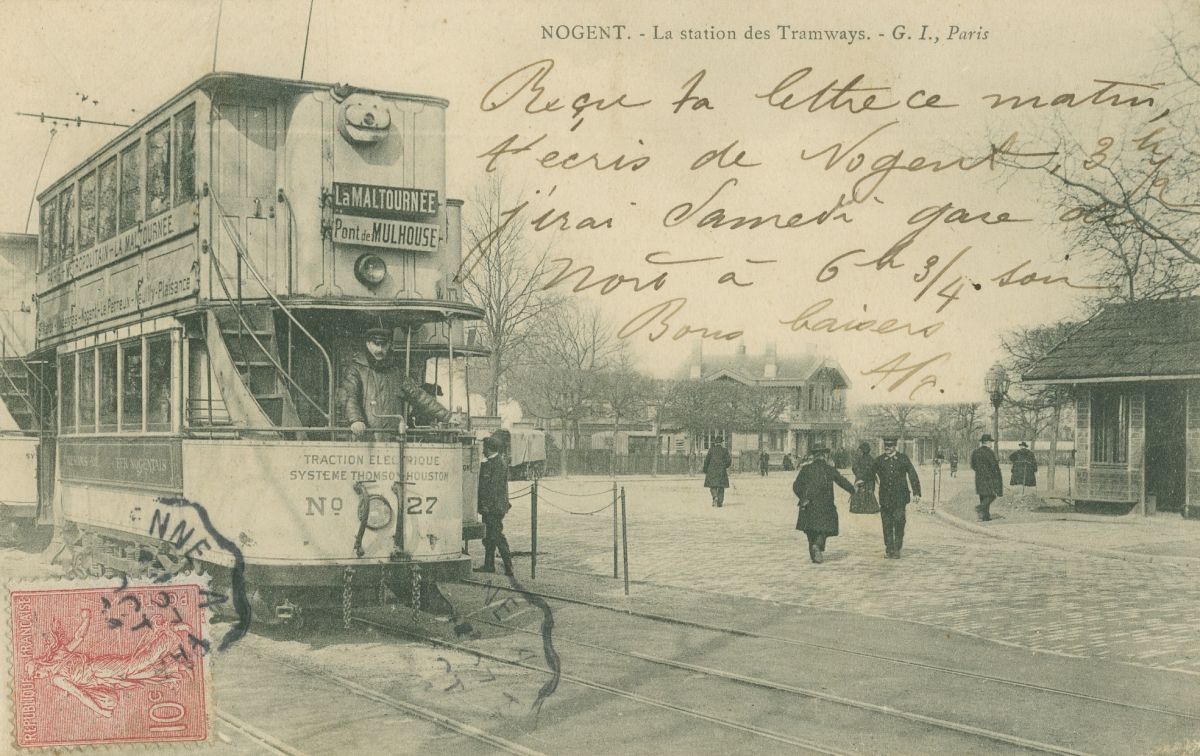 NOGENT. - La station des Tramways. - G. I., Paris
Reçu ta lettre ce matin,
t'écris de Nogent, 3 h 1/2
j'irai Samedi gare du
Nord à 6 h 3/4 soir
Bons baisers
La MALTOURNÉE
Pont de MULHOUSE
PARIS-METROPOLITAIN-LA MALTOURNÉE
Nogent-Le Perreux-Neuilly-Plaisance
NOGENTAIS
TRACTION ELECTRIQUE
SYSTEME THOMSON-HOUSTON
No 27
NNE A PA
OCT
NNE A
REPUBLIQUE FRANÇAISE
10c